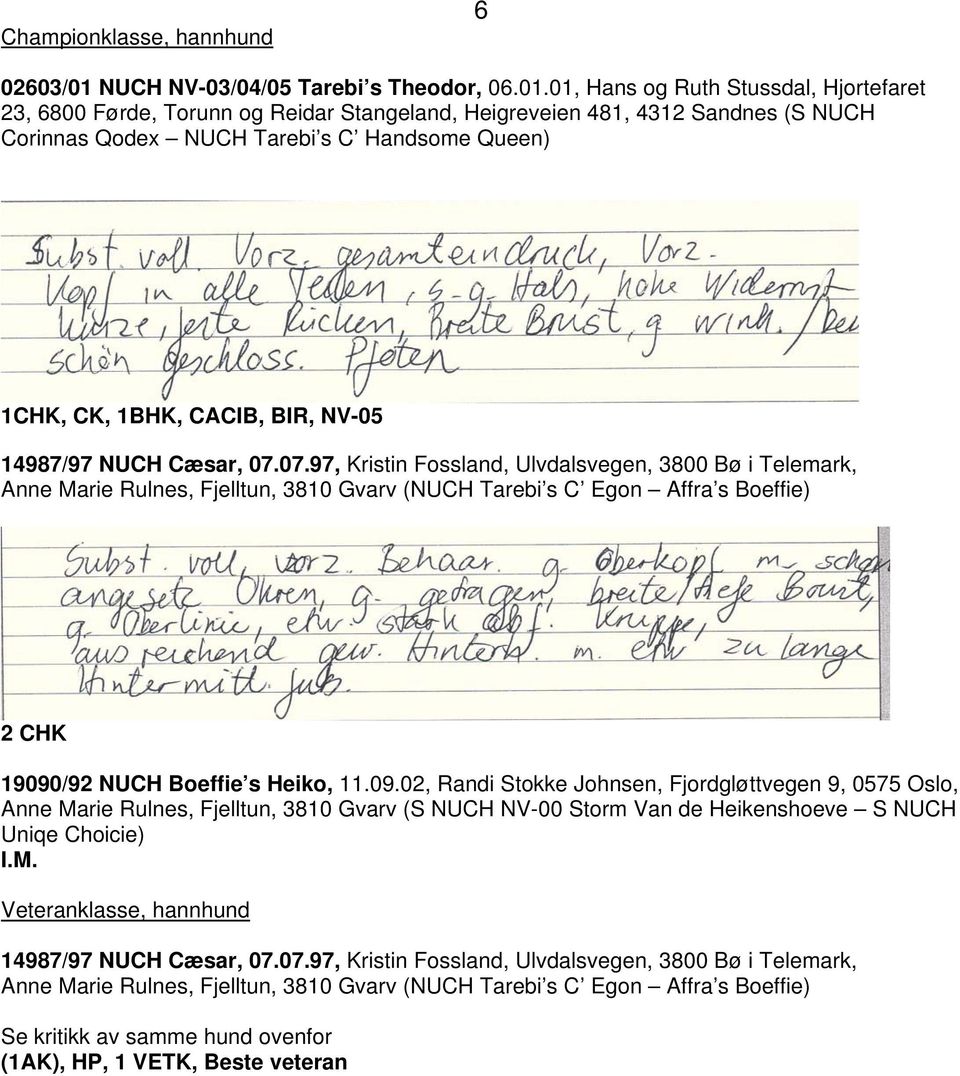 6
Championklasse, hannhund
02603/01 NUCH NV-03/04/05 Tarebi’s Theodor, 06.01.01, Hans og Ruth Stussdal, Hjortefaret
23, 6800 Førde, Torunn og Reidar Stangeland, Heigreveien 481, 4312 Sandnes (S NUCH
Corinnas Qodex – NUCH Tarebi’s C’ Handsome Queen)
Subst. voll. Vorz. gesamteindruck, Vorz.
Kopf in alle Teilen, s.g. Hals, hohe Widerrist
kurze, feste Rücken, Breite Brust, g wink. /
schön geschloss. Pfoten
1CHK, CK, 1BHK, CACIB, BIR, NV-05
14987/97 NUCH Cæsar, 07.07.97, Kristin Fossland, Ulvdalsvegen, 3800 Bø i Telemark,
Anne Marie Rulnes, Fjelltun, 3810 Gvarv (NUCH Tarebi’s C’ Egon – Affra’s Boeffie)
Subst. voll, vorz. Behaar. g. Oberkopf m. schon
angesetz Ohren, g. getragen, breite/tiefe Brust,
g. Oberlinie, etw. stark abf. Kruppe,
ausreichend gew. Hinterh. m. etw zu lange
Hintermitt. fuß.
2 CHK
19090/92 NUCH Boeffie’s Heiko, 11.09.02, Randi Stokke Johnsen, Fjordgløttvegen 9, 0575 Oslo,
Anne Marie Rulnes, Fjelltun, 3810 Gvarv (S NUCH NV-00 Storm Van de Heikenshoeve – S NUCH
Uniqe Choicie)
I.M.
Veteranklasse, hannhund
14987/97 NUCH Cæsar, 07.07.97, Kristin Fossland, Ulvdalsvegen, 3800 Bø i Telemark,
Anne Marie Rulnes, Fjelltun, 3810 Gvarv (NUCH Tarebi’s C’ Egon – Affra’s Boeffie)
Se kritikk av samme hund ovenfor
(1AK), HP, 1 VETK, Beste veteran